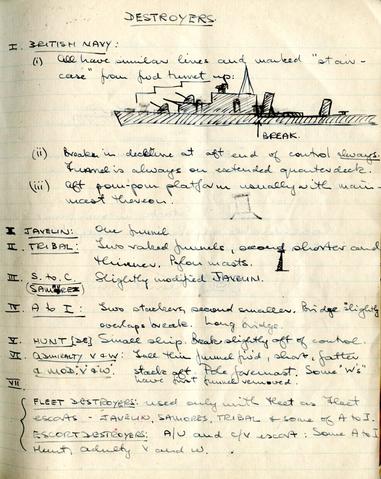 DESTROYERS.
I. BRITISH NAVY:
(i) All have similar lines and marked "stair-
case" from fwd turret up:
BREAK.
(ii) Break in deckline at aft end of control always.
Funnel is always on extended quarterdeck.
(iii) Aft pom-pom platform usually with main-
mast thereon.
I JAVELIN: One funnel
II. TRIBAL: Two raked funnels, second shorter and
thinner. Pylon masts.
III. S. to. C. Slightly modified JAVELIN.
(SAMOREZ)
IV. A to I: Two stackers, second smaller. Bridge slightly
overlaps break. Long bridge.
V. HUNT [DE] Small ship. Break slightly aft of control.
VI. ADMIRALTY V & W: Tall thin funnel fwd, short, fatter
& MOD. 'V' & 'W' stack aft. Pole foremast. Some 'W's
VII have first funnel removed.
FLEET DESTROYERS: used only with fleet as fleet
escorts - JAVELIN, SAMOREZ, TRIBAL & some of A to I.
ESCORT DESTROYERS: A/U and c/v escort: Some A to I
Hunt, admlty V and W.